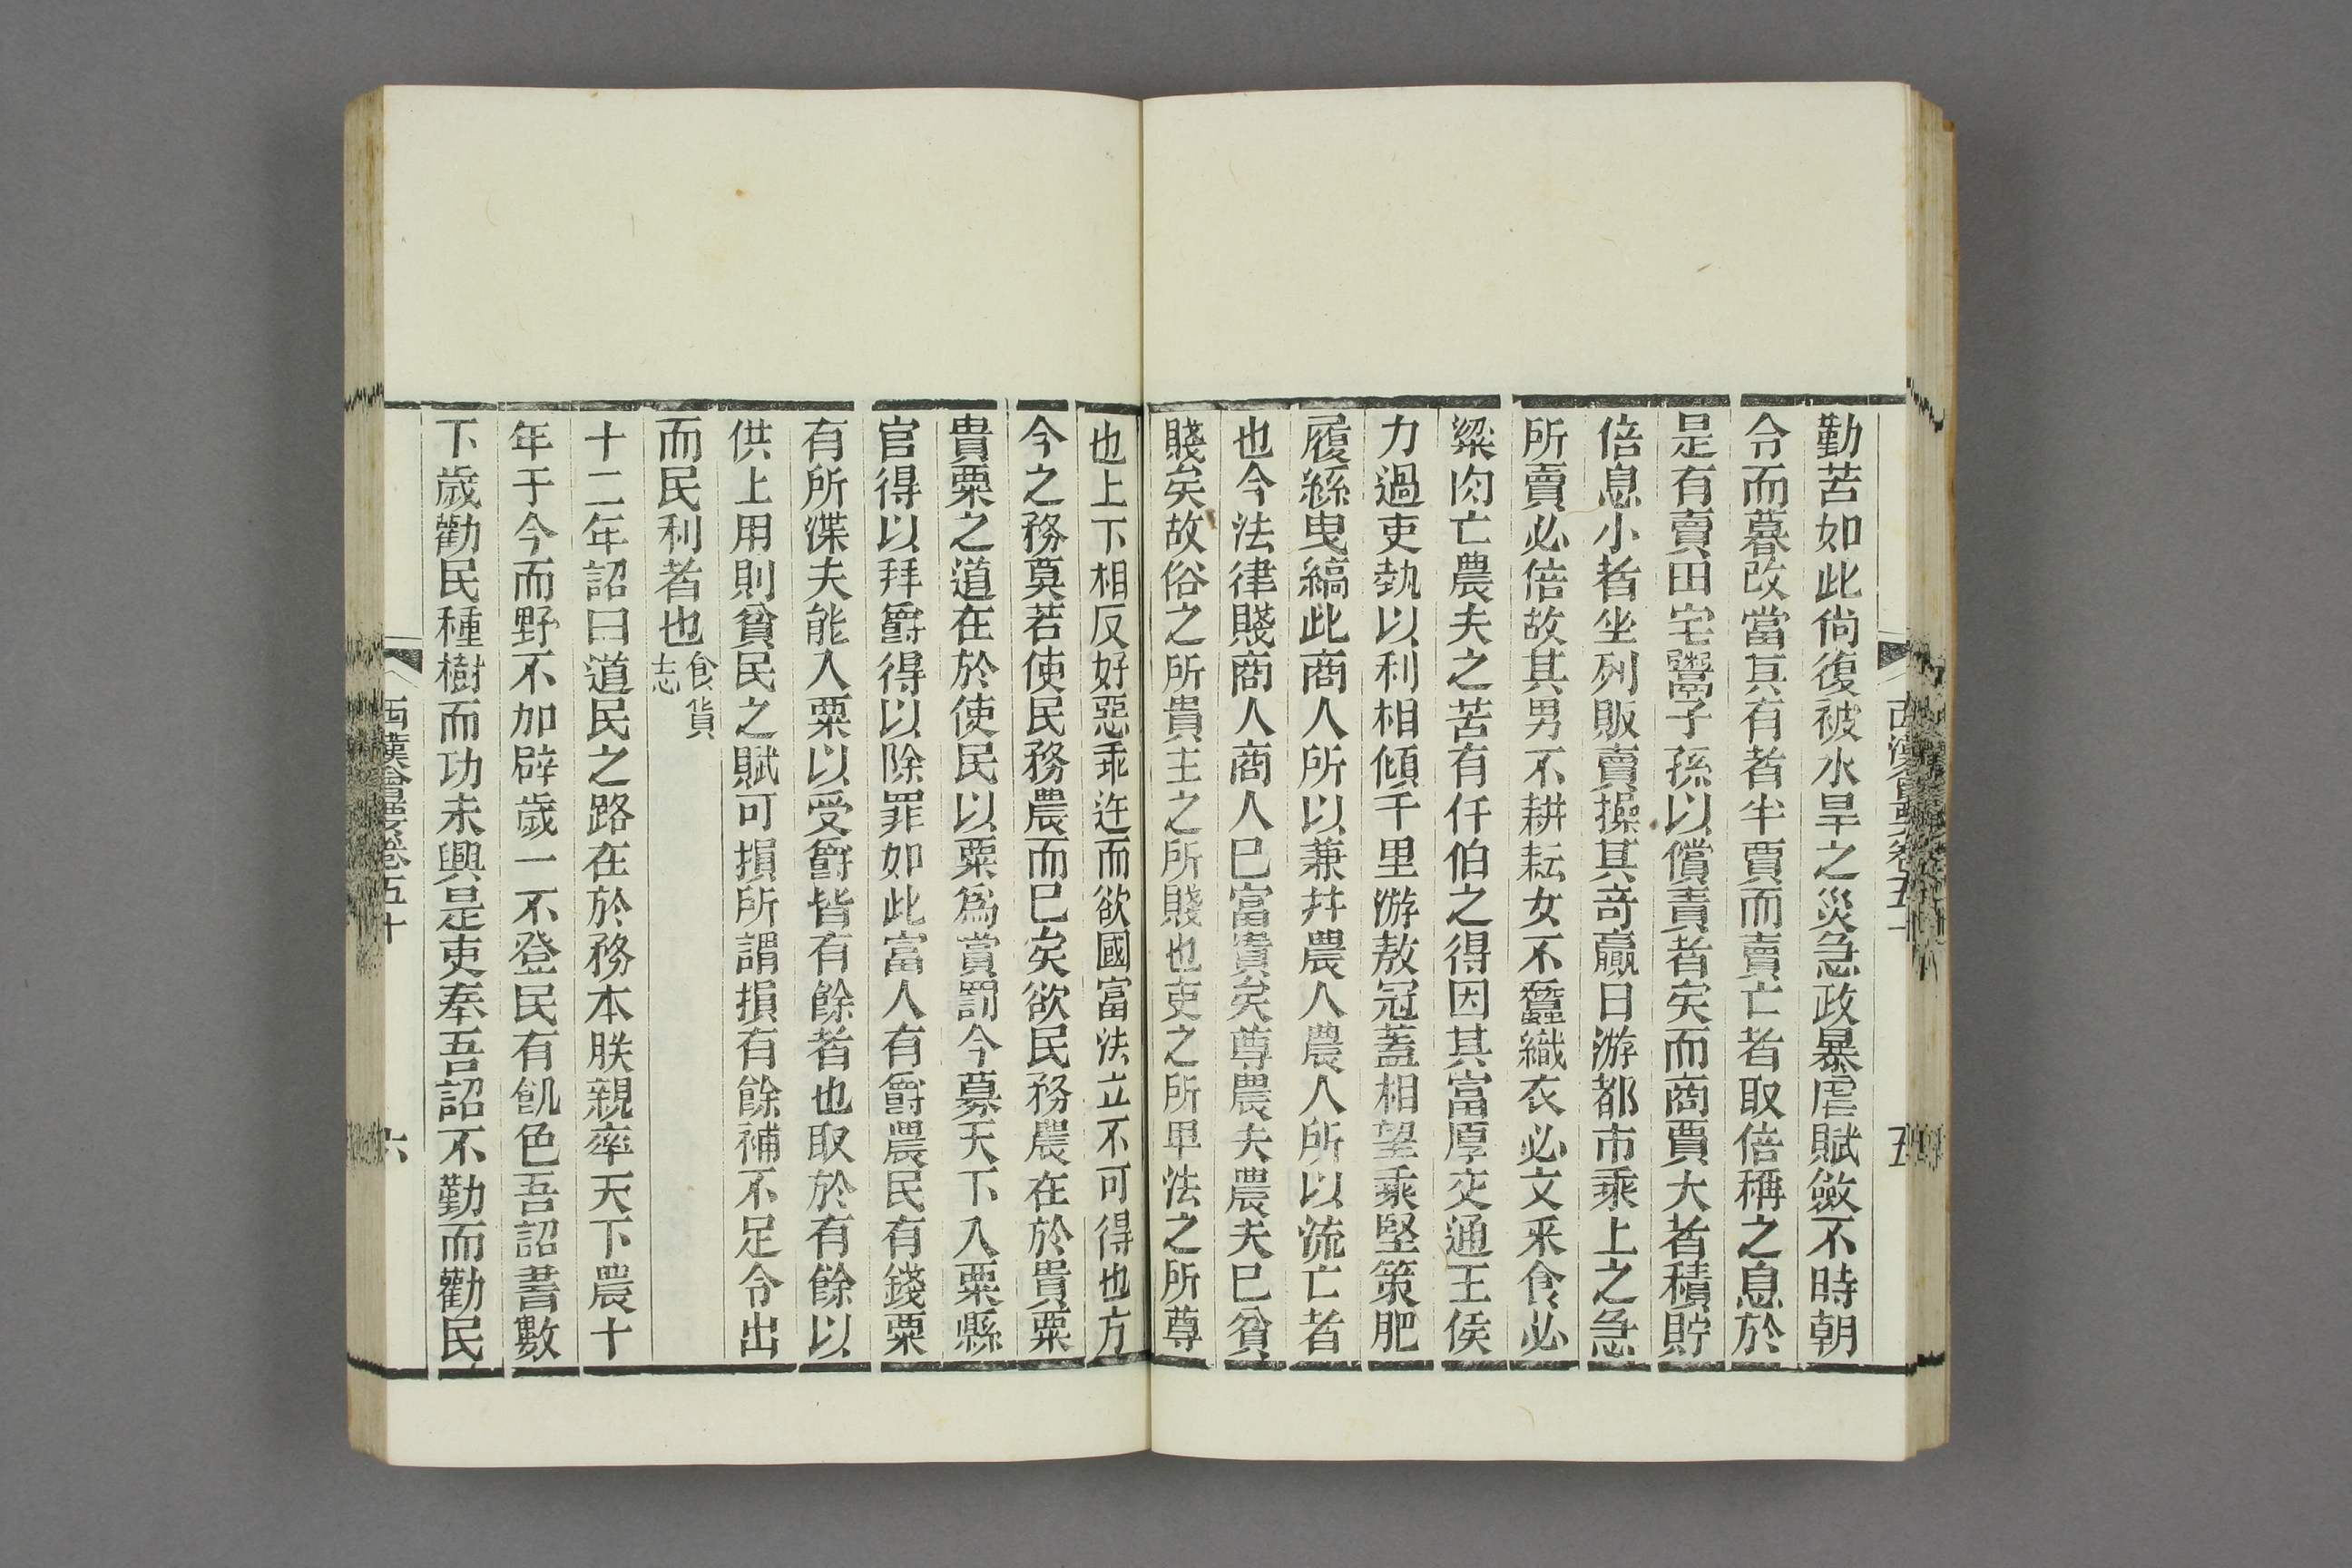 勤苦如此尙復被水旱之災急政暴虐賦斂不時朝
令而暮改當其有者半賈而賣亡者取倍稱之息於
是有賣田宅鬻子孫以償責者矣而商賈大者積貯
倍息小者坐列販賣操其奇贏日游都市乘上之急
所賣必倍故其男不耕耘女不蠶織衣必文采食必
粱肉亡農夫之苦有仟伯之得因其富厚交通王侯
力過吏埶以利相傾千里游敖冠蓋相望乘堅策肥
履絲曳縞此商人所以兼幷農人農人所以流亡者
也今法律賤商人商人已富貴矣尊農夫農夫已貧
賤矣故俗之所貴主之所賤也吏之所卑法之所尊
也上下相反好惡乖迕而欲國富法立不可得也方
今之務莫若使民務農而已矣欲民務農在於貴粟
貴粟之道在於使民以粟爲賞罰今募天下入粟縣
官得以拜爵得以除罪如此富人有爵農民有錢粟
有所渫夫能入粟以受爵皆有餘者也取於有餘以
供上用則貧民之賦可損所謂損有餘補不足令出
而民利者也食貨志
十二年詔曰道民之路在於務本朕親率天下農十
年于今而野不加辟歲一不登民有飢色吾詔書數
下歲勸民種樹而功未興是吏奉吾詔不勤而勸民
西漢會要卷五十
六